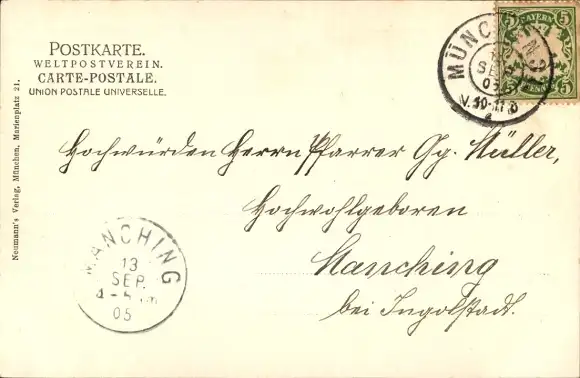 POSTKARTE.
WELTPOSTVEREIN.
CARTE-POSTALE.
UNION POSTALE UNIVERSELLE.
5 BAYERN 5
5 PFENNIG 5
MÜNCHEN
SEP
V. 10-11
Hochwürden Herrn Pfarrer Gg. Müller,
Hochwohlgeboren
Manching
bei Ingolstadt.
MANCHING
13
SEP.
05
Neumann's Verlag, München, Marienplatz 21.